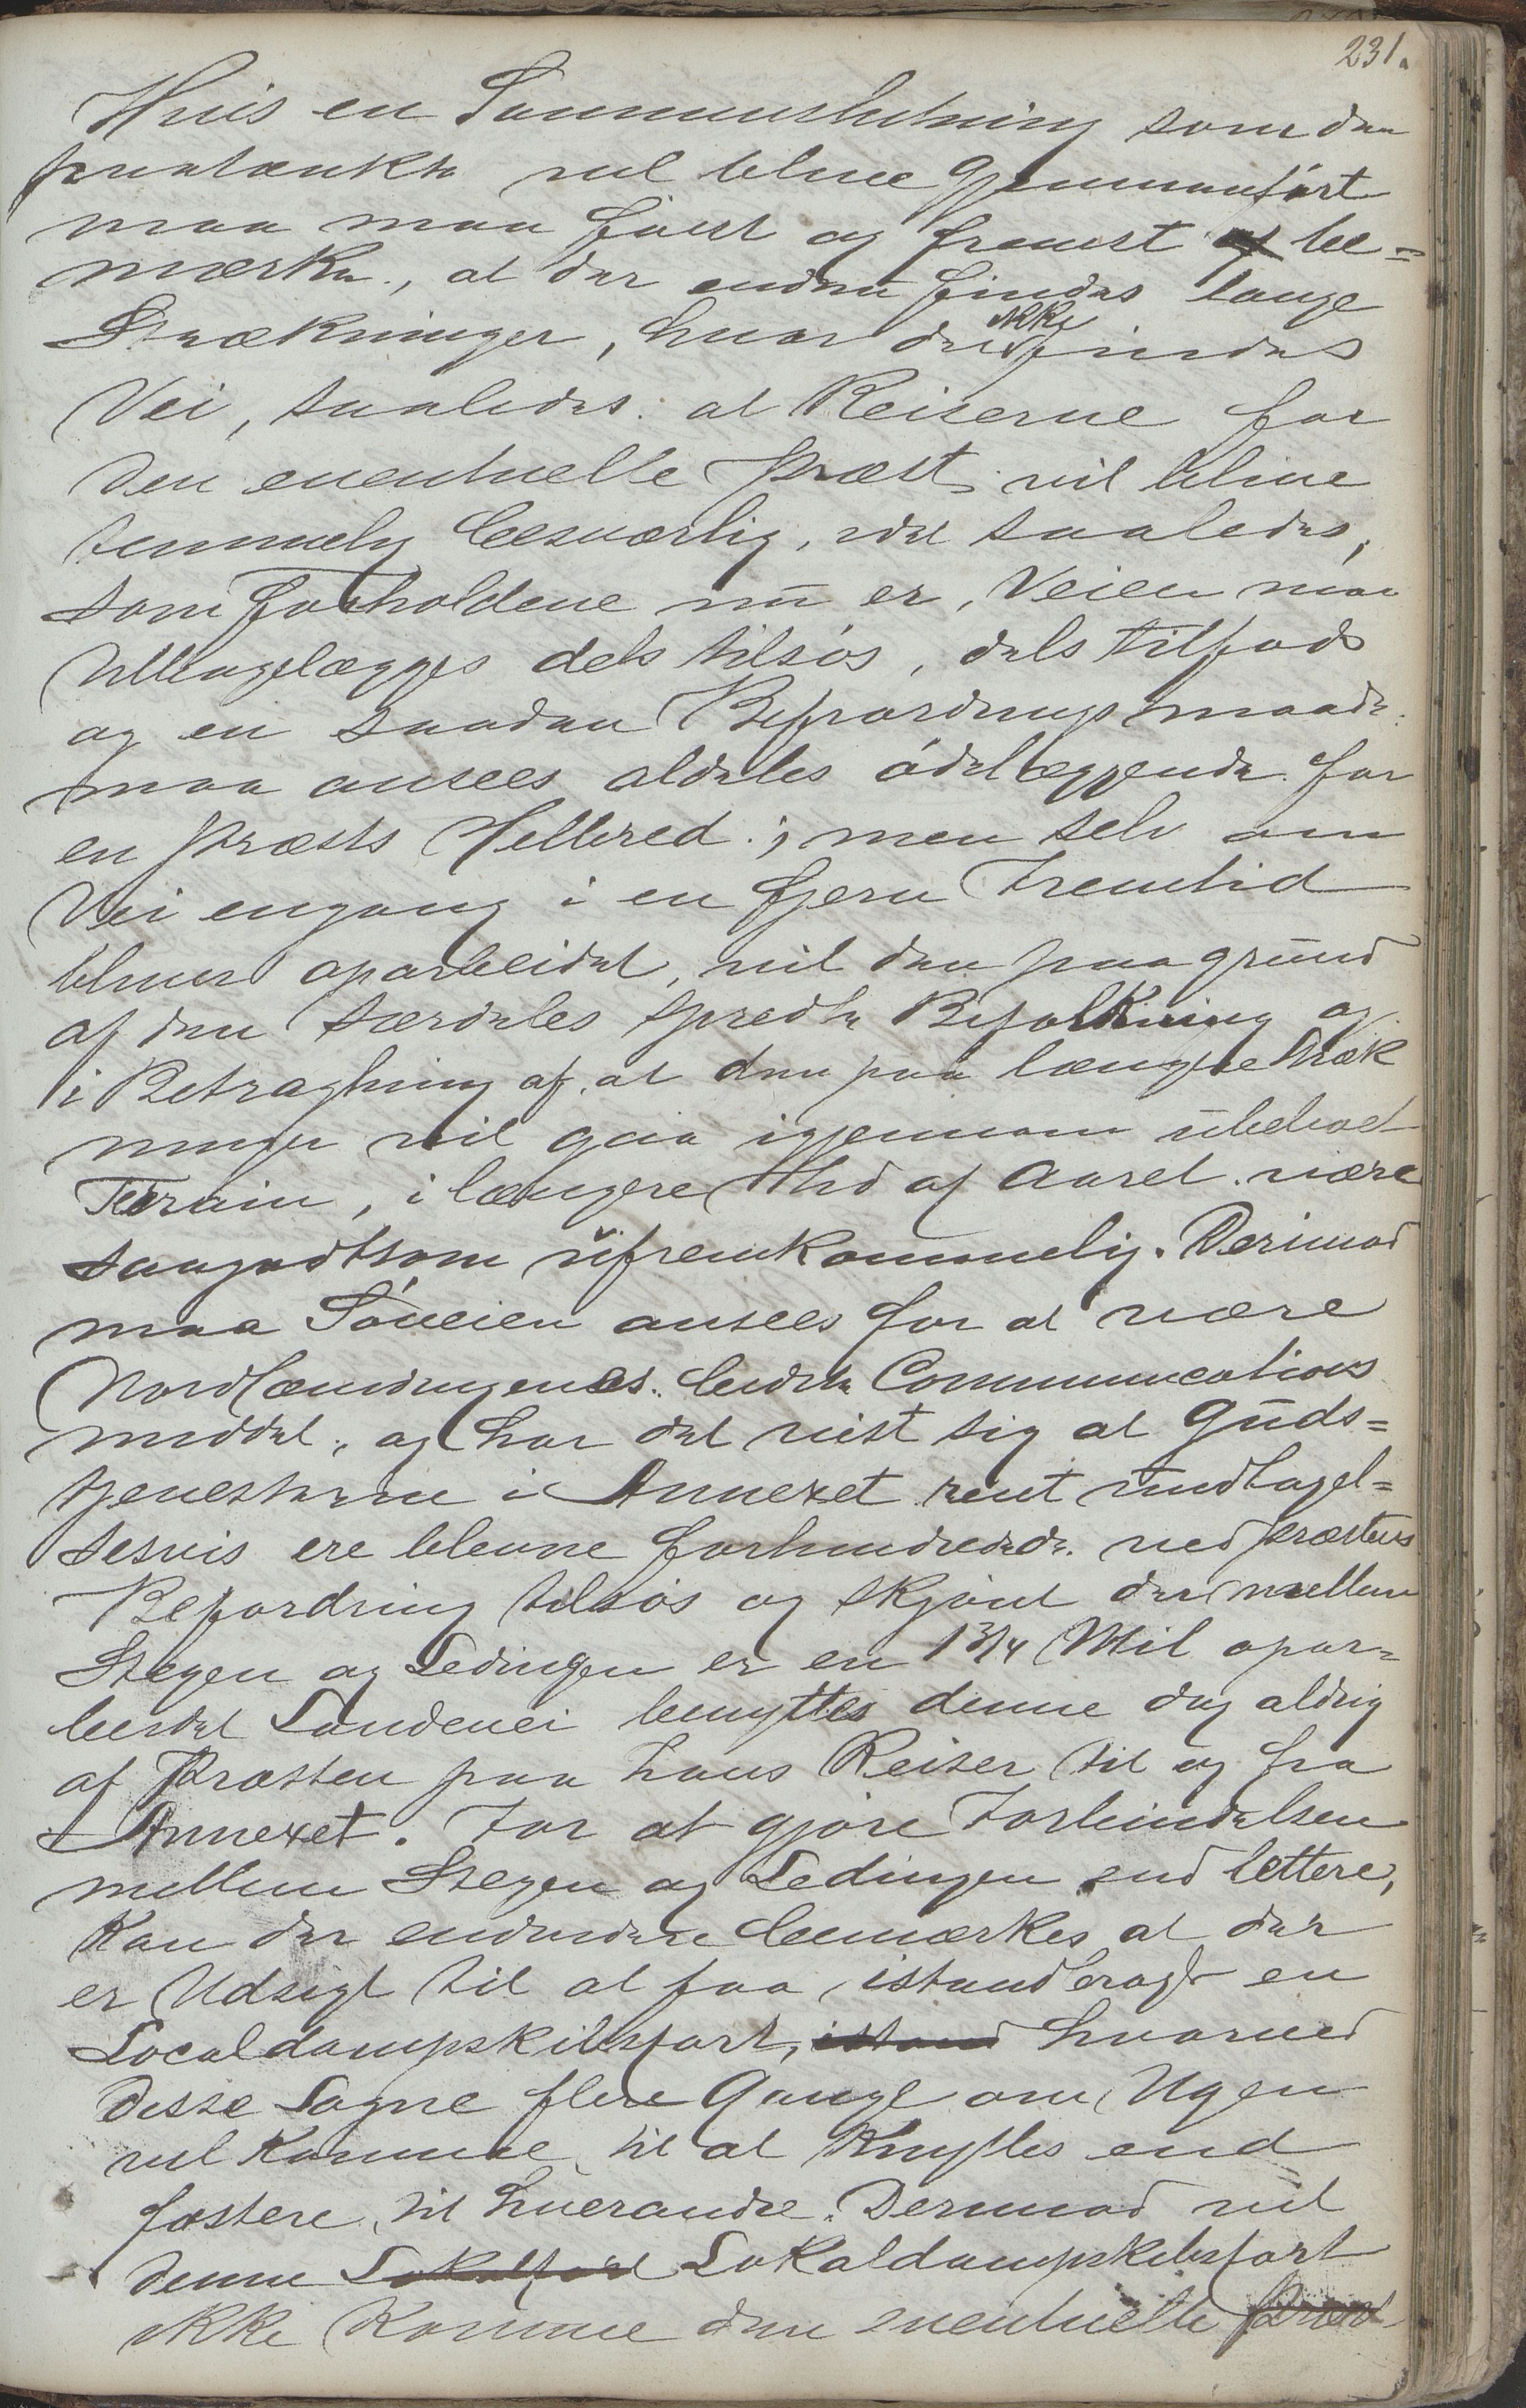 231.
Hvis en Sammenslutning som den
paatænkte vil blive gjennemført
maa man først og fremst af be=
mærke, at der endnu findes lange
Strækninger, hvor der ikke findes
Vei, saaledes at Reiserne for
den eventuelle Præst vil blive
temmelig besværlig, idet saaledes,
som Forholdene nu er, Veien maa
tilbagelægges dels tilsøs, dels tilfods
og en saadan Befordringsmaade
maa ansees aldeles ødelæggende for
en Præsts Helbred; men selv om
Vei engang i en fjern Fremtid
bliver oparbeidet, vil den paagrund
af den særdeles spredte Befolkning og
i Betragtning af, at den paa længere Stræk
ninger vil gaa igjennem ubeboet
Terrain, i længere Tid af Aaret være
saagodtsom ufremkommelig. Derimod
maa Søveien ansees for at være
Nordlændingenes bedste Communications
middel, og har det vist sig at Guds=
tjenesterne i Annexet rent undtagel=
sesvis ere blevne forhindrede ved Præstens
Befordring tilsøs og skjønt der mellem
Stegen og Ledingen er en 1 3/4 Miil opar=
beidet Landevei benyttes denne dog aldrig
af Præsten paa hans Reiser til og fra
Annexet. For at gjøre Forbindelsen
mellem Stegen og Ledingen end lettere,
kan der endvidere bemærkes, at der
er Udsigt til at faa istandbragt en
Localdampskibsfart, istand hvorved
disse Sogne flere Gange om Ugen
vil komme til at knyttes end
fastere til hverandre. Derimod vil
denne Lokalfart Lokaldampskibsfart
ikke komme den eventuelle Præst